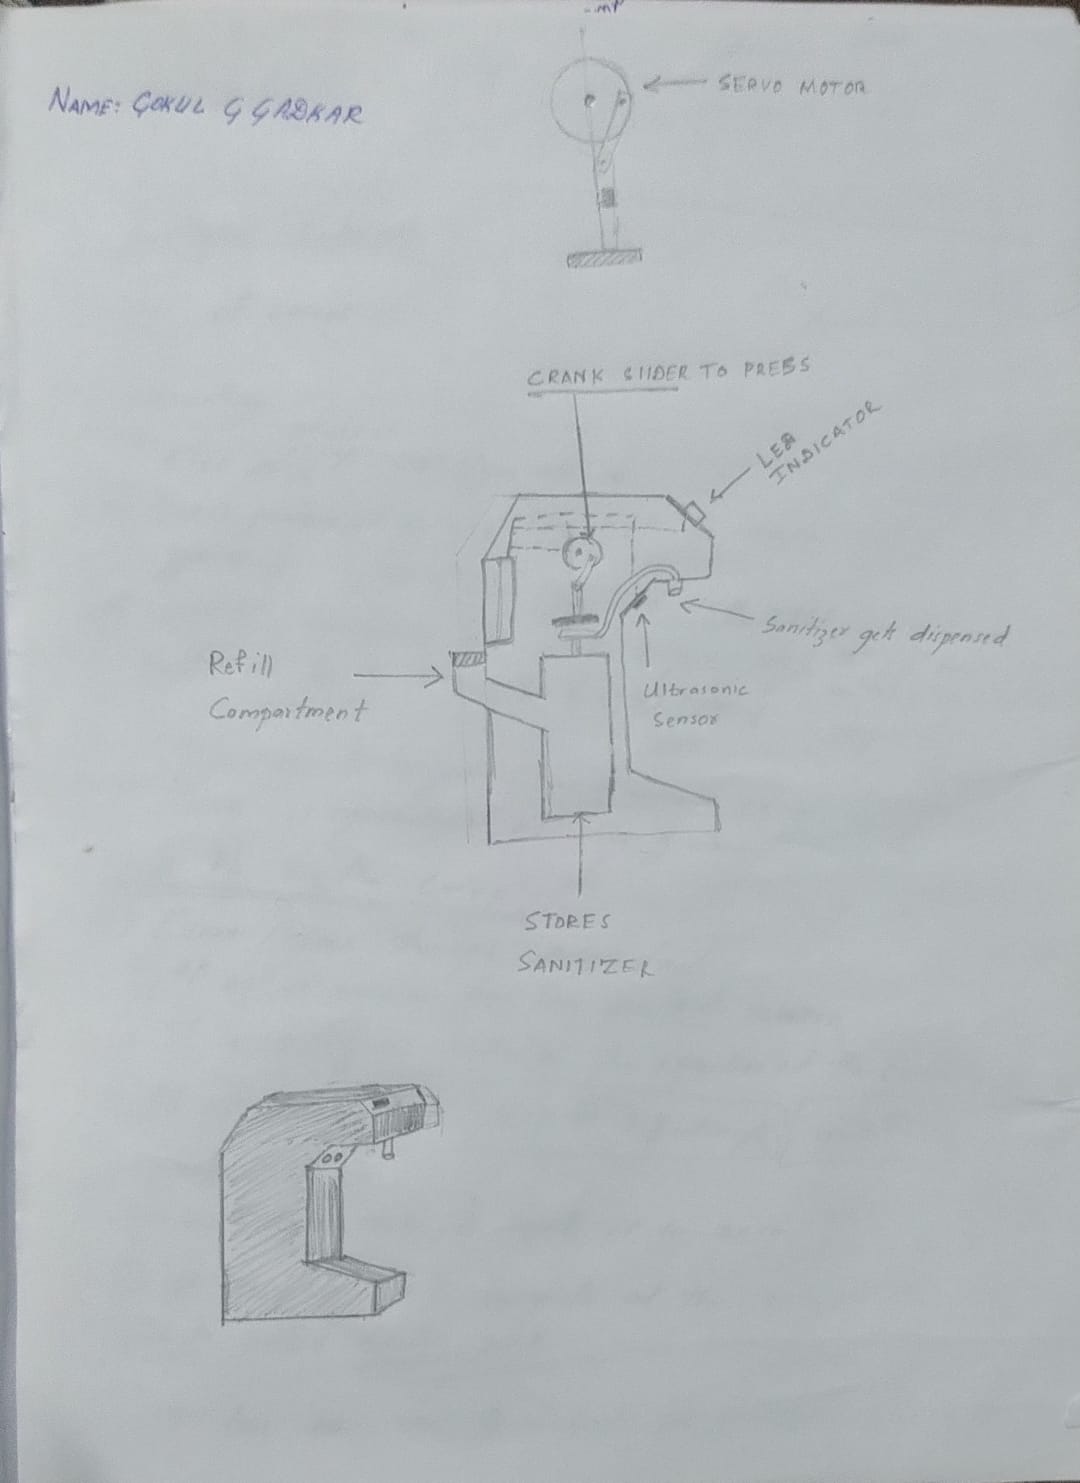 NAME: GOKUL G GADKAR
SERVO MOTOR
CRANK SLIDER TO PRESS
LED
INDICATOR
Sanitizer gets dispensed
Refill
Compartment
Ultrasonic
Sensor
STORES
SANITIZER